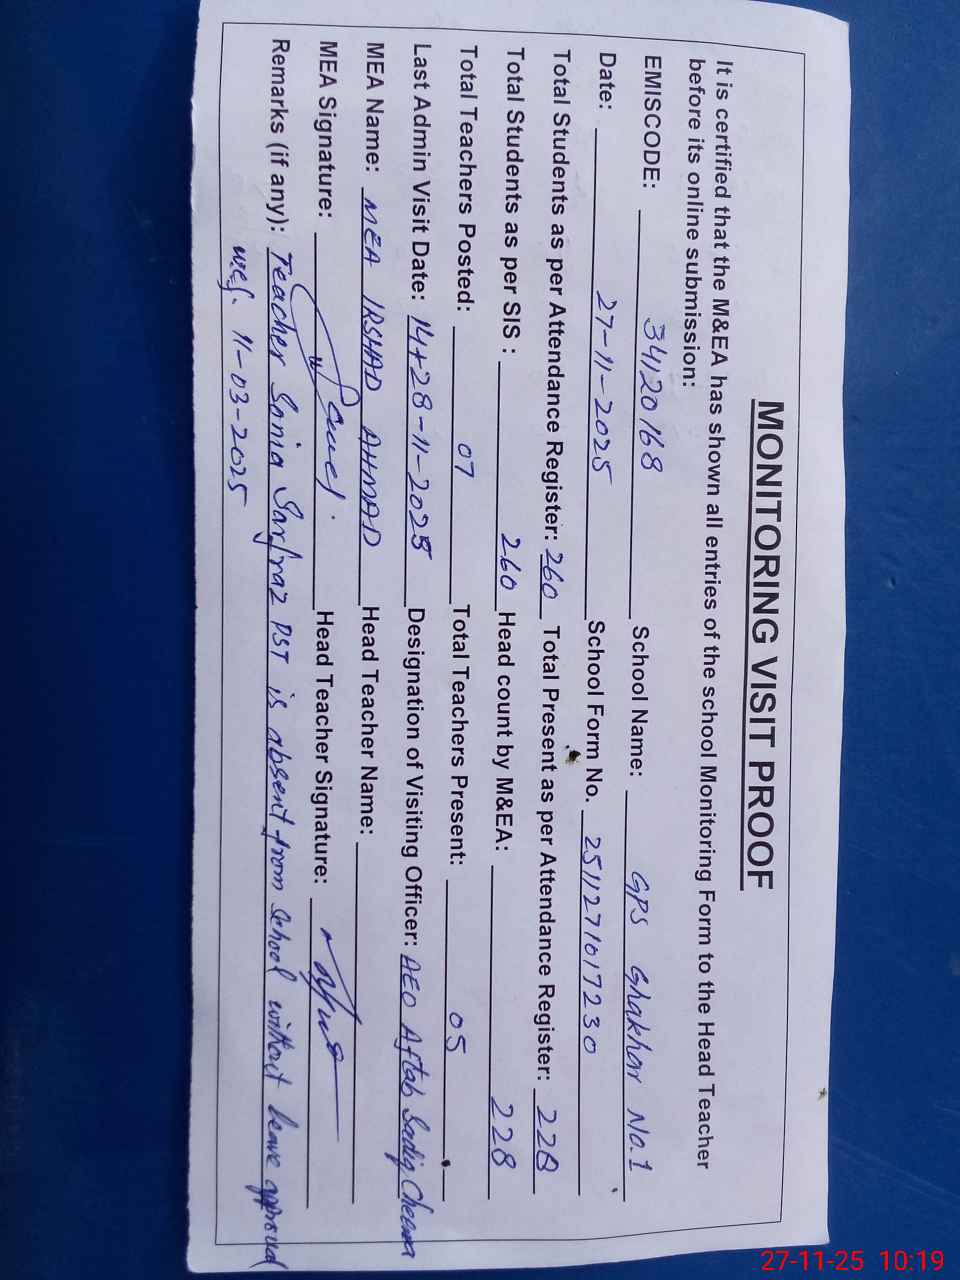 MONITORING VISIT PROOF
It is certified that the M&EA has shown all entries of the school Monitoring Form to the Head Teacher
before its online submission:
EMISCODE: 34120168 School Name: GPS Ghakhar No.1
Date: 27-11-2025 School Form No. 2511271017230
Total Students as per Attendance Register: 260 Total Present as per Attendance Register: 228
Total Students as per SIS : 260 Head count by M&EA: 228
Total Teachers Posted: 07 Total Teachers Present: 05
Last Admin Visit Date: 14+28-11-2025 Designation of Visiting Officer: AEO Aftab Sadiq Cheema
MEA Name: MEA IRSHAD AHMAD Head Teacher Name:
MEA Signature: Head Teacher Signature:
Remarks (if any): Teacher Sonia Sarfraz PST is absent from School without leave approval
w.e.f. 11-03-2025
27-11-25 10:19